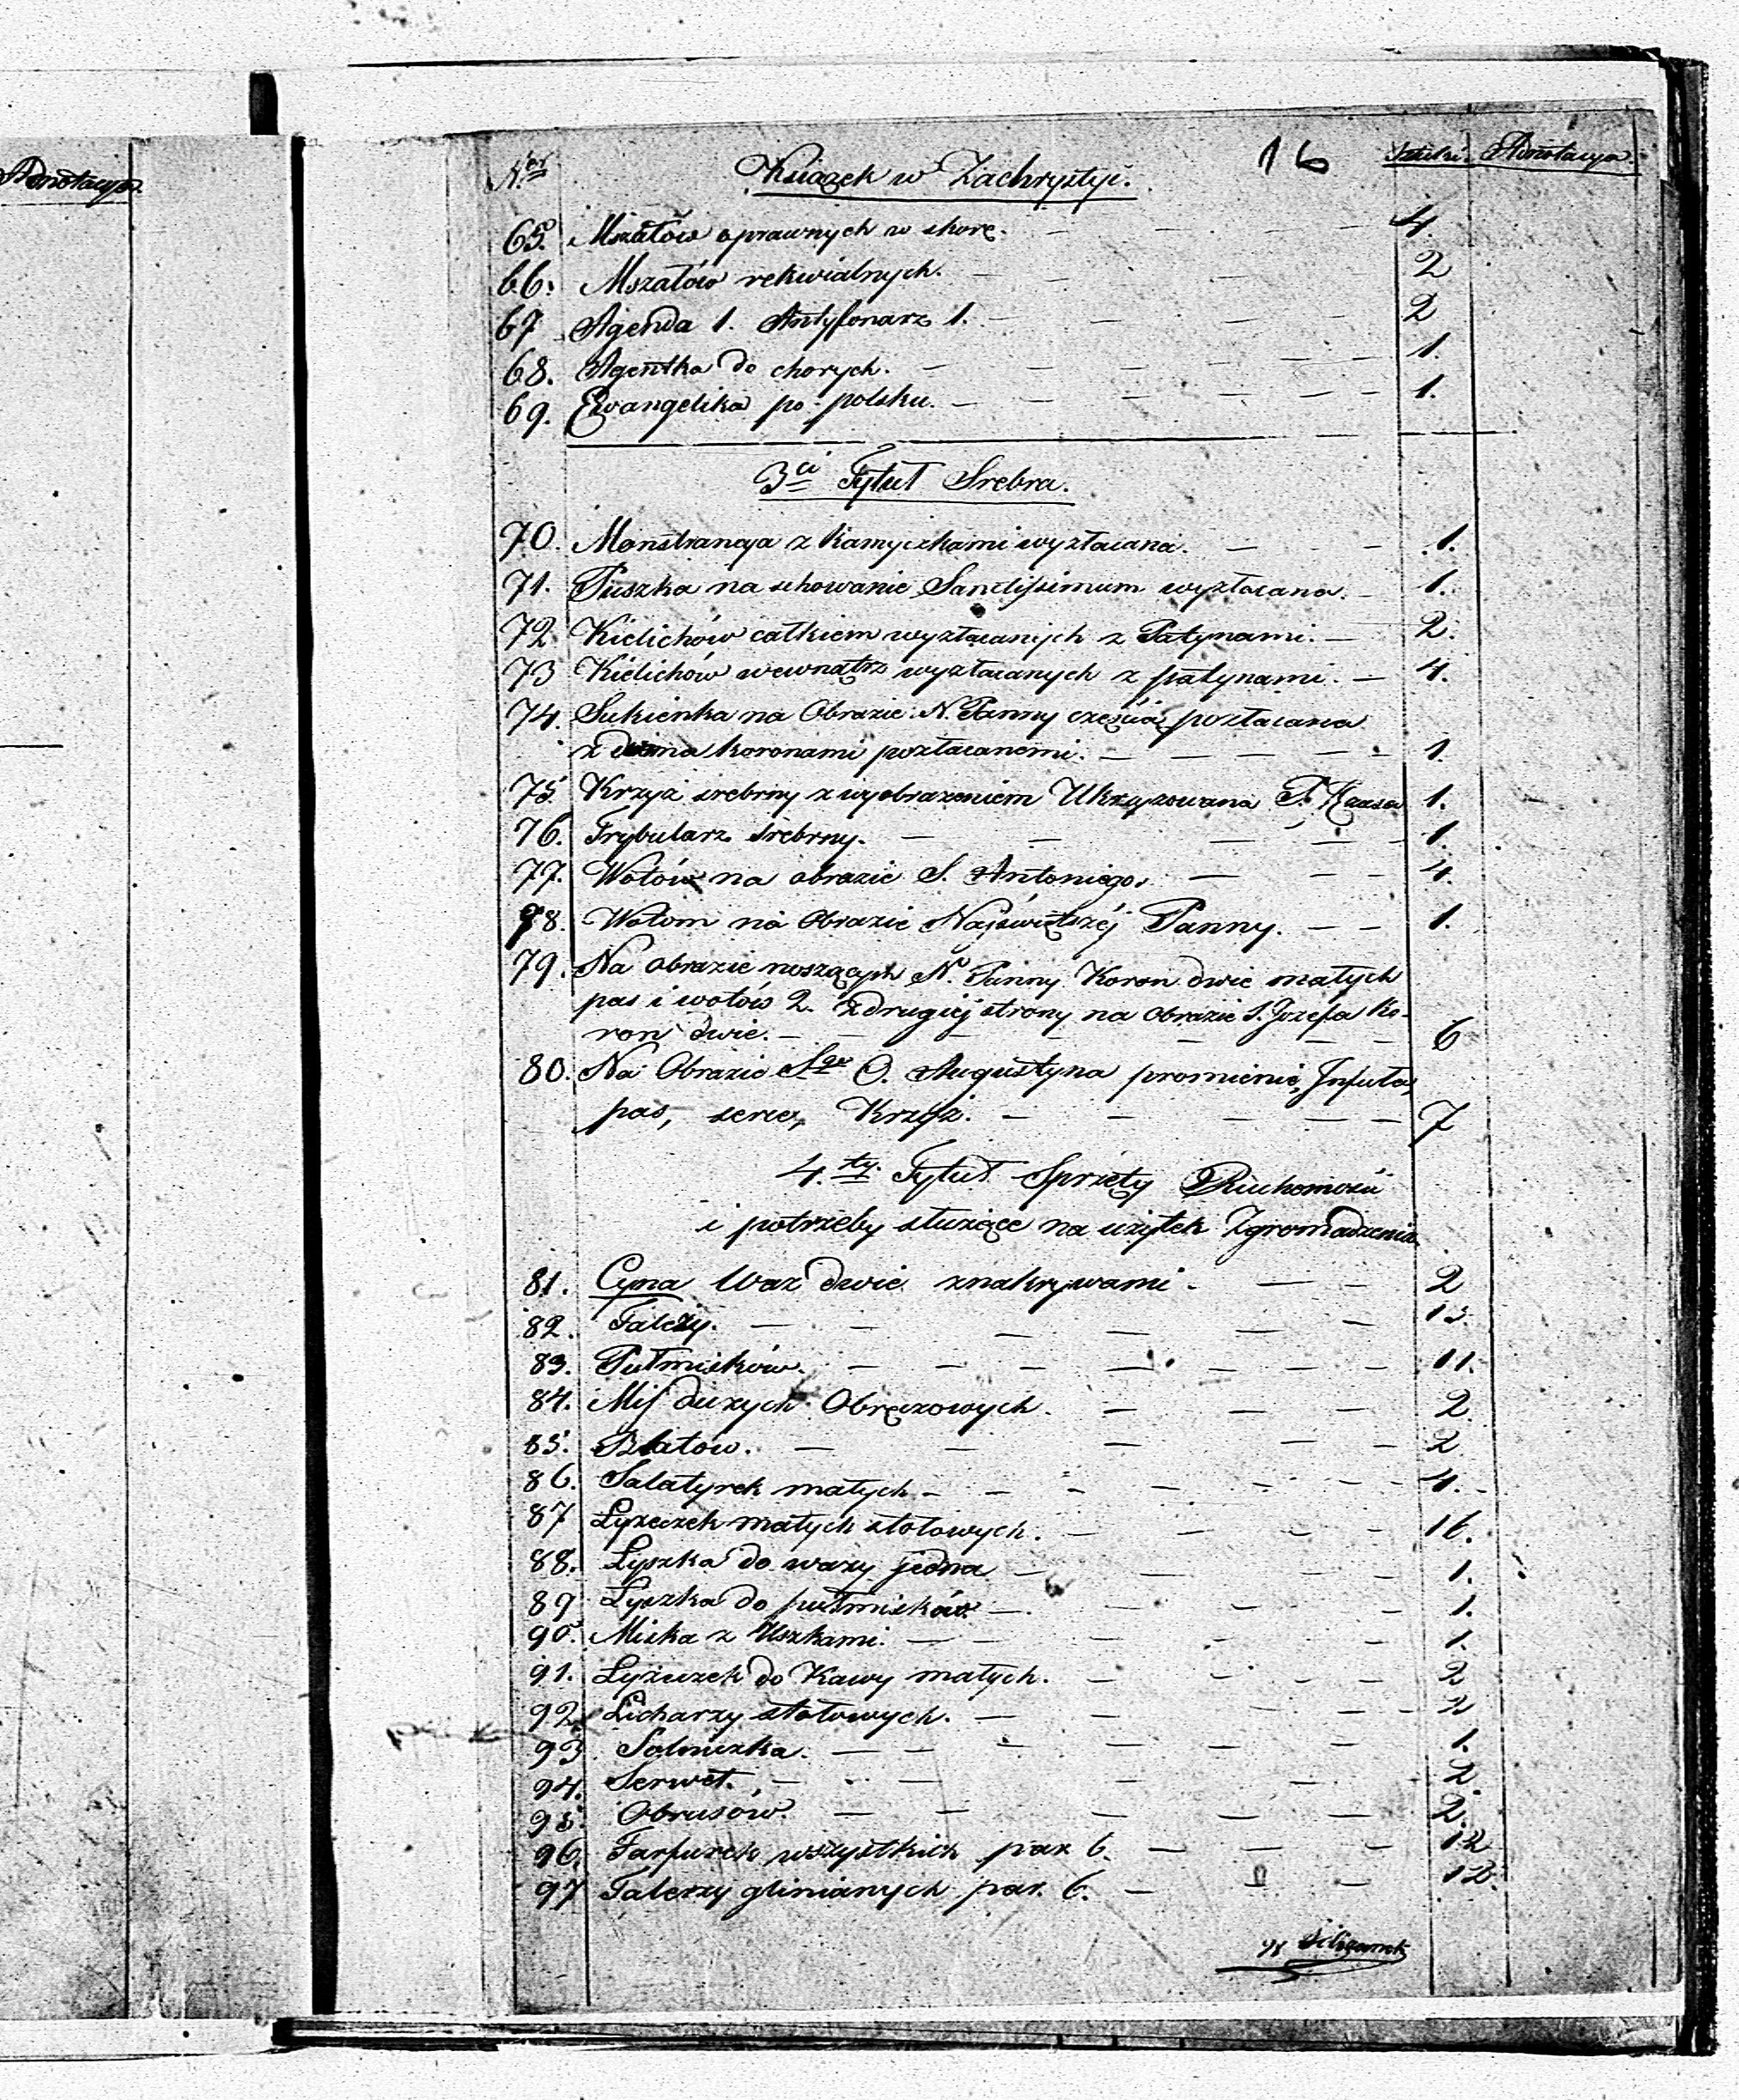 Adnotacya
Ner Książek w Zachrystyi. 16 Sztuki. Adnotacya.
65. Mszałów oprawnych w skorę. 4.
66. Mszałów rekwialnych. 2
67 Agenda 1. Antyfonarz 1. 2
68. Agentka do chorych. 1.
69. Ewangelika po polsku. 1.
3ci Tytuł Srebra.
70. Monstrancya z kamyczkami wyzłacana. 1.
71. Puszka na schowanie Sanctissimum wyzłacana. 1.
72. Kielichów całkiem wyzłacanych z Patynami. 2.
73 Kielichów wewnątrz wyzłacanych z patynami. 4.
74. Sukienka na Obrazie N. Panny częścią pozłacana
z dwoma koronami pozłacanemi. 1.
75 Krzyż srebrny z wyobrażeniem Ukrzyżowana P. 1.
76. Trybularz srebrny. 1.
77. Wotów na obrazie S. Antoniego. 4.
78. Wotom na Obrazie Najświętszéj Panny. 1.
79. Na obrazie noszących N. Panny Koron dwie małych
pas i wotów 2. z drugiéj strony na obrazie S. Józefa Ko-
ron dwie. 6
80. Na Obrazie Sgo O. Augustyna promienie, Infuła,
pas, serce, Krzyż. 7
4.ty Tytuł Sprzęty Ruchomości
i potrzeby służące na użytek Zgromadzenia
81. Cyna Waz dwie znakrywami. 2
82. Tależy. 13.
83. Pułmisków. 11.
84. Mis dużych Obręczowych. 2
85. Blatów. 2
86. Salatyrek małych 4.
87 Łyżeczek małych stołowych. 16.
88. Łyszka do wazy jedna 1.
89 Łyszka do pułmisków. 1.
90. Miska z Uszkami. 1.
91. Łyżeczek do Kawy małych. 2
92. Licharzy stołowych. 2
93. Solniczka. 1.
94. Serwet. 2
95. Obrusów. 2.
96. Farfurek wszystkich par 6. 12
97 Talerzy glinianych par. 6. 12.